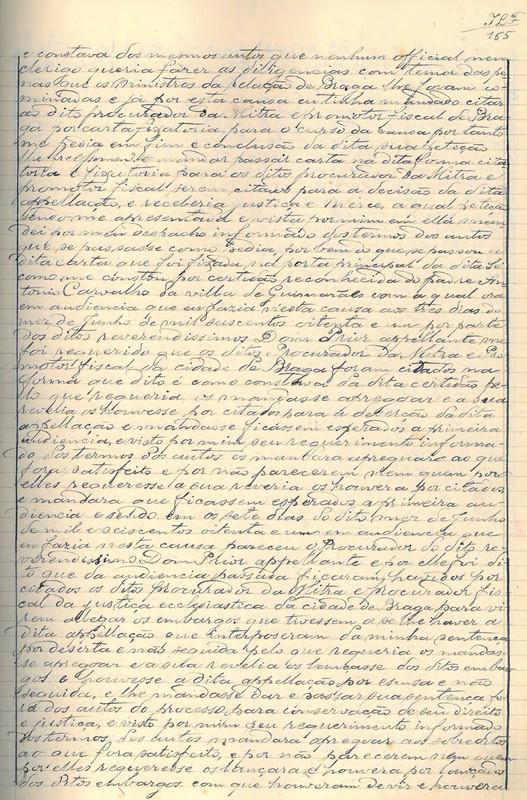 165
e constava dos mesmos autos que nenhum official nem
clerigo queria fazer as diligencias com temor das pe-
nas que os Ministros da relação de Braga lhe foram co-
minadas e já por esta causa mandado citar
ao dito procurador da Mitra e promotor fiscal de Bra-
ga por carta para o curso da causa por tanto
me pedia em fim e conclusão da dita sua petição
lhe mandar passar carta na dita forma cita-
toria e para os ditos procurador da Mitra e
promotor fiscal serem citados para a decisão da dita
appellação, e receberia justiça e mercê, a qual petição
sendo-me apresentada e vista por mim em ella man-
dei por meu despacho informado dos termos dos autos
que se passasse como pedia, por bem do que se passou a
dita carta que foi fixada na porta principal da dita Sé
como me constou por certidão reconhecida do padre An-
tonio Carvalho da villa de Guimarães com a qual
em audiencia que eu fazia nesta causa aos tres dias do
mez de Junho de mil seiscentos oitenta e um por parte
dos ditos reverendissimos Dom Prior appellante me
foi requerido que os ditos Procurador da Mitra e Pro-
motor fiscal da cidade de Braga foram citados na
forma que dito é como constava da dita certidão pe-
lo que requeria os mandasse apregoar e a sua
revelia os houvesse por citados para a deserção da dita
appellação e mandasse ficassem esperados a primeira
audiencia, e visto por mim seu requerimento informa-
do dos termos dos autos os mandara apregoar ao que
fora satisfeito e por não parecerem nem quem por
elles requeresse a sua reveria os houvera por citados,
e mandara que ficassem esperados a primeira au-
diencia e sendo em os sete dias do dito mez de Junho
de mil e seiscentos oitenta e um em audiencia que
eu fazia nesta causa pareceu o Procurador do dito re-
verendissimo Dom Prior appellante e por elle foi di-
to que da audiencia passada ficaram havidos por
citados os ditos procurador da Mitra e procurador fis-
cal da justiça ecclesiastica da cidade de Braga para vi-
rem allegar os embargos que tivessem a se lhe haver a
dita appellação que interposeram da minha sentença
por deserta e não seguida pelo que requeria os mandas-
se apregoar e a sua revelia os lançasse dos ditos embar-
gos e houvesse a dita appellação por e não
seguida, e lhe mandasse dar e passar sua sentença fo-
ra dos autos do processo, para conservação de seu direito
e justiça, e visto por mim seu requerimento informado
dos termos, dos autos mandara apregoar aos sobreditos
ao que fora satisfeito, e por não parecerem nem quem
por elles requeresse os lançara e houvera por lançados
dos ditos embargos com que houveram de vir e houvera